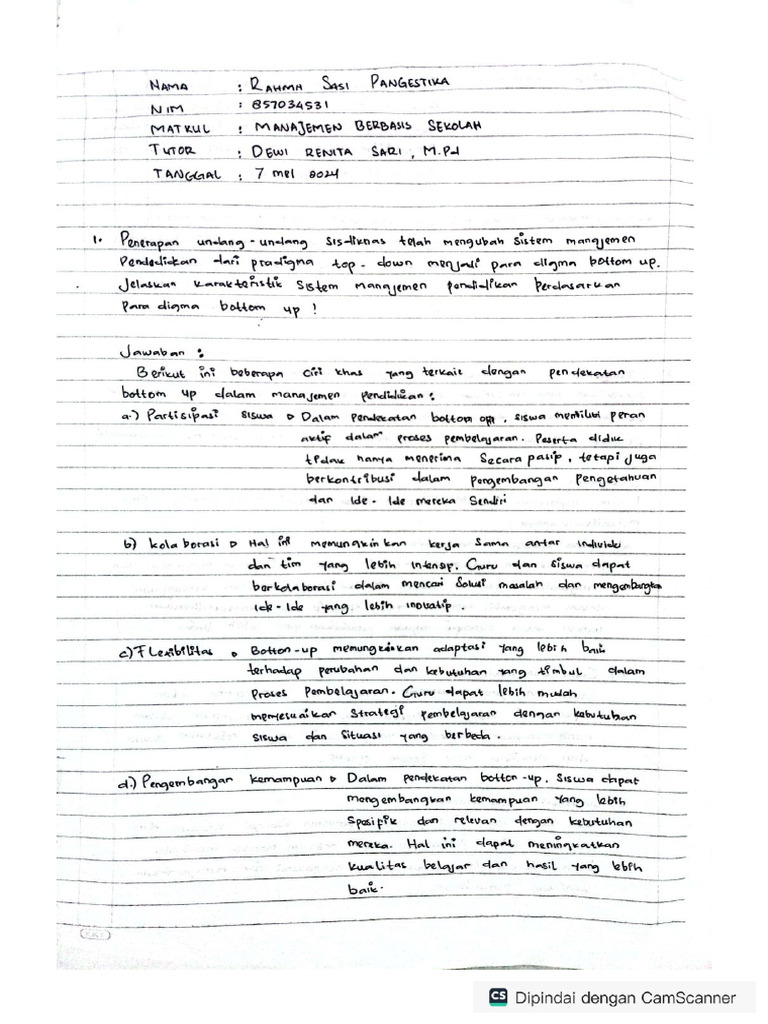 NAMA : RAHMA SASI PANGESTIKA
NIM : 857034531
MATKUL : MANAJEMEN BERBASIS SEKOLAH
TUTOR : DEWI RENITA SARI, M.Pd
TANGGAL : 7 mei 2024
1. Penerapan undang-undang sisdiknas telah mengubah sistem manajemen
Pendedickan dari pradigma top-down menjadi para digma bottom up.
Jelaskan karakteristik sistem manajemen pendidikan berdasarkan
Para digma bottom up !
Jawaban :
Berikut ini beberapa ciri khas yang terkait dengan pendekatan
bottom up dalam manajemen pendidikan :
a.) Partisipasi siswa ▷ Dalam pendekatan bottom up, siswa memiliki peran
aktif dalam proses pembelajaran. Peserta didik
tidak hanya menerima secara pasip, tetapi juga
berkontribusi dalam pengembangan pengetahuan
dan Ide-Ide mereka sendiri
b) kolaborasi ▷ Hal ini memungkinkan kerja sama antar individu
dan tim yang lebih intensip. Guru dan siswa dapat
berkolaborasi dalam mencari solusi masalah dan mengembangkan
ide-Ide yang lebih inovatip.
c) Flexibilitas ▷ Botton-up memungkinkan adaptasi yang lebih baik
terhadap perubahan dan kebutuhan yang timbul dalam
Proses Pembelajaran. Guru dapat lebih mudah
menyesuaikan strategi pembelajaran dengan kebutuhan
siswa dan situasi yang berbeda.
d.) Pengembangan kemampuan ▷ Dalam pendekatan botton-up, siswa dapat
mengembangkan kemampuan yang lebih
spesifik dan relevan dengan kebutuhan
mereka. Hal ini dapat meningkatkan
kualitas belajar dan hasil yang lebih
baik.
CS Dipindai dengan CamScanner